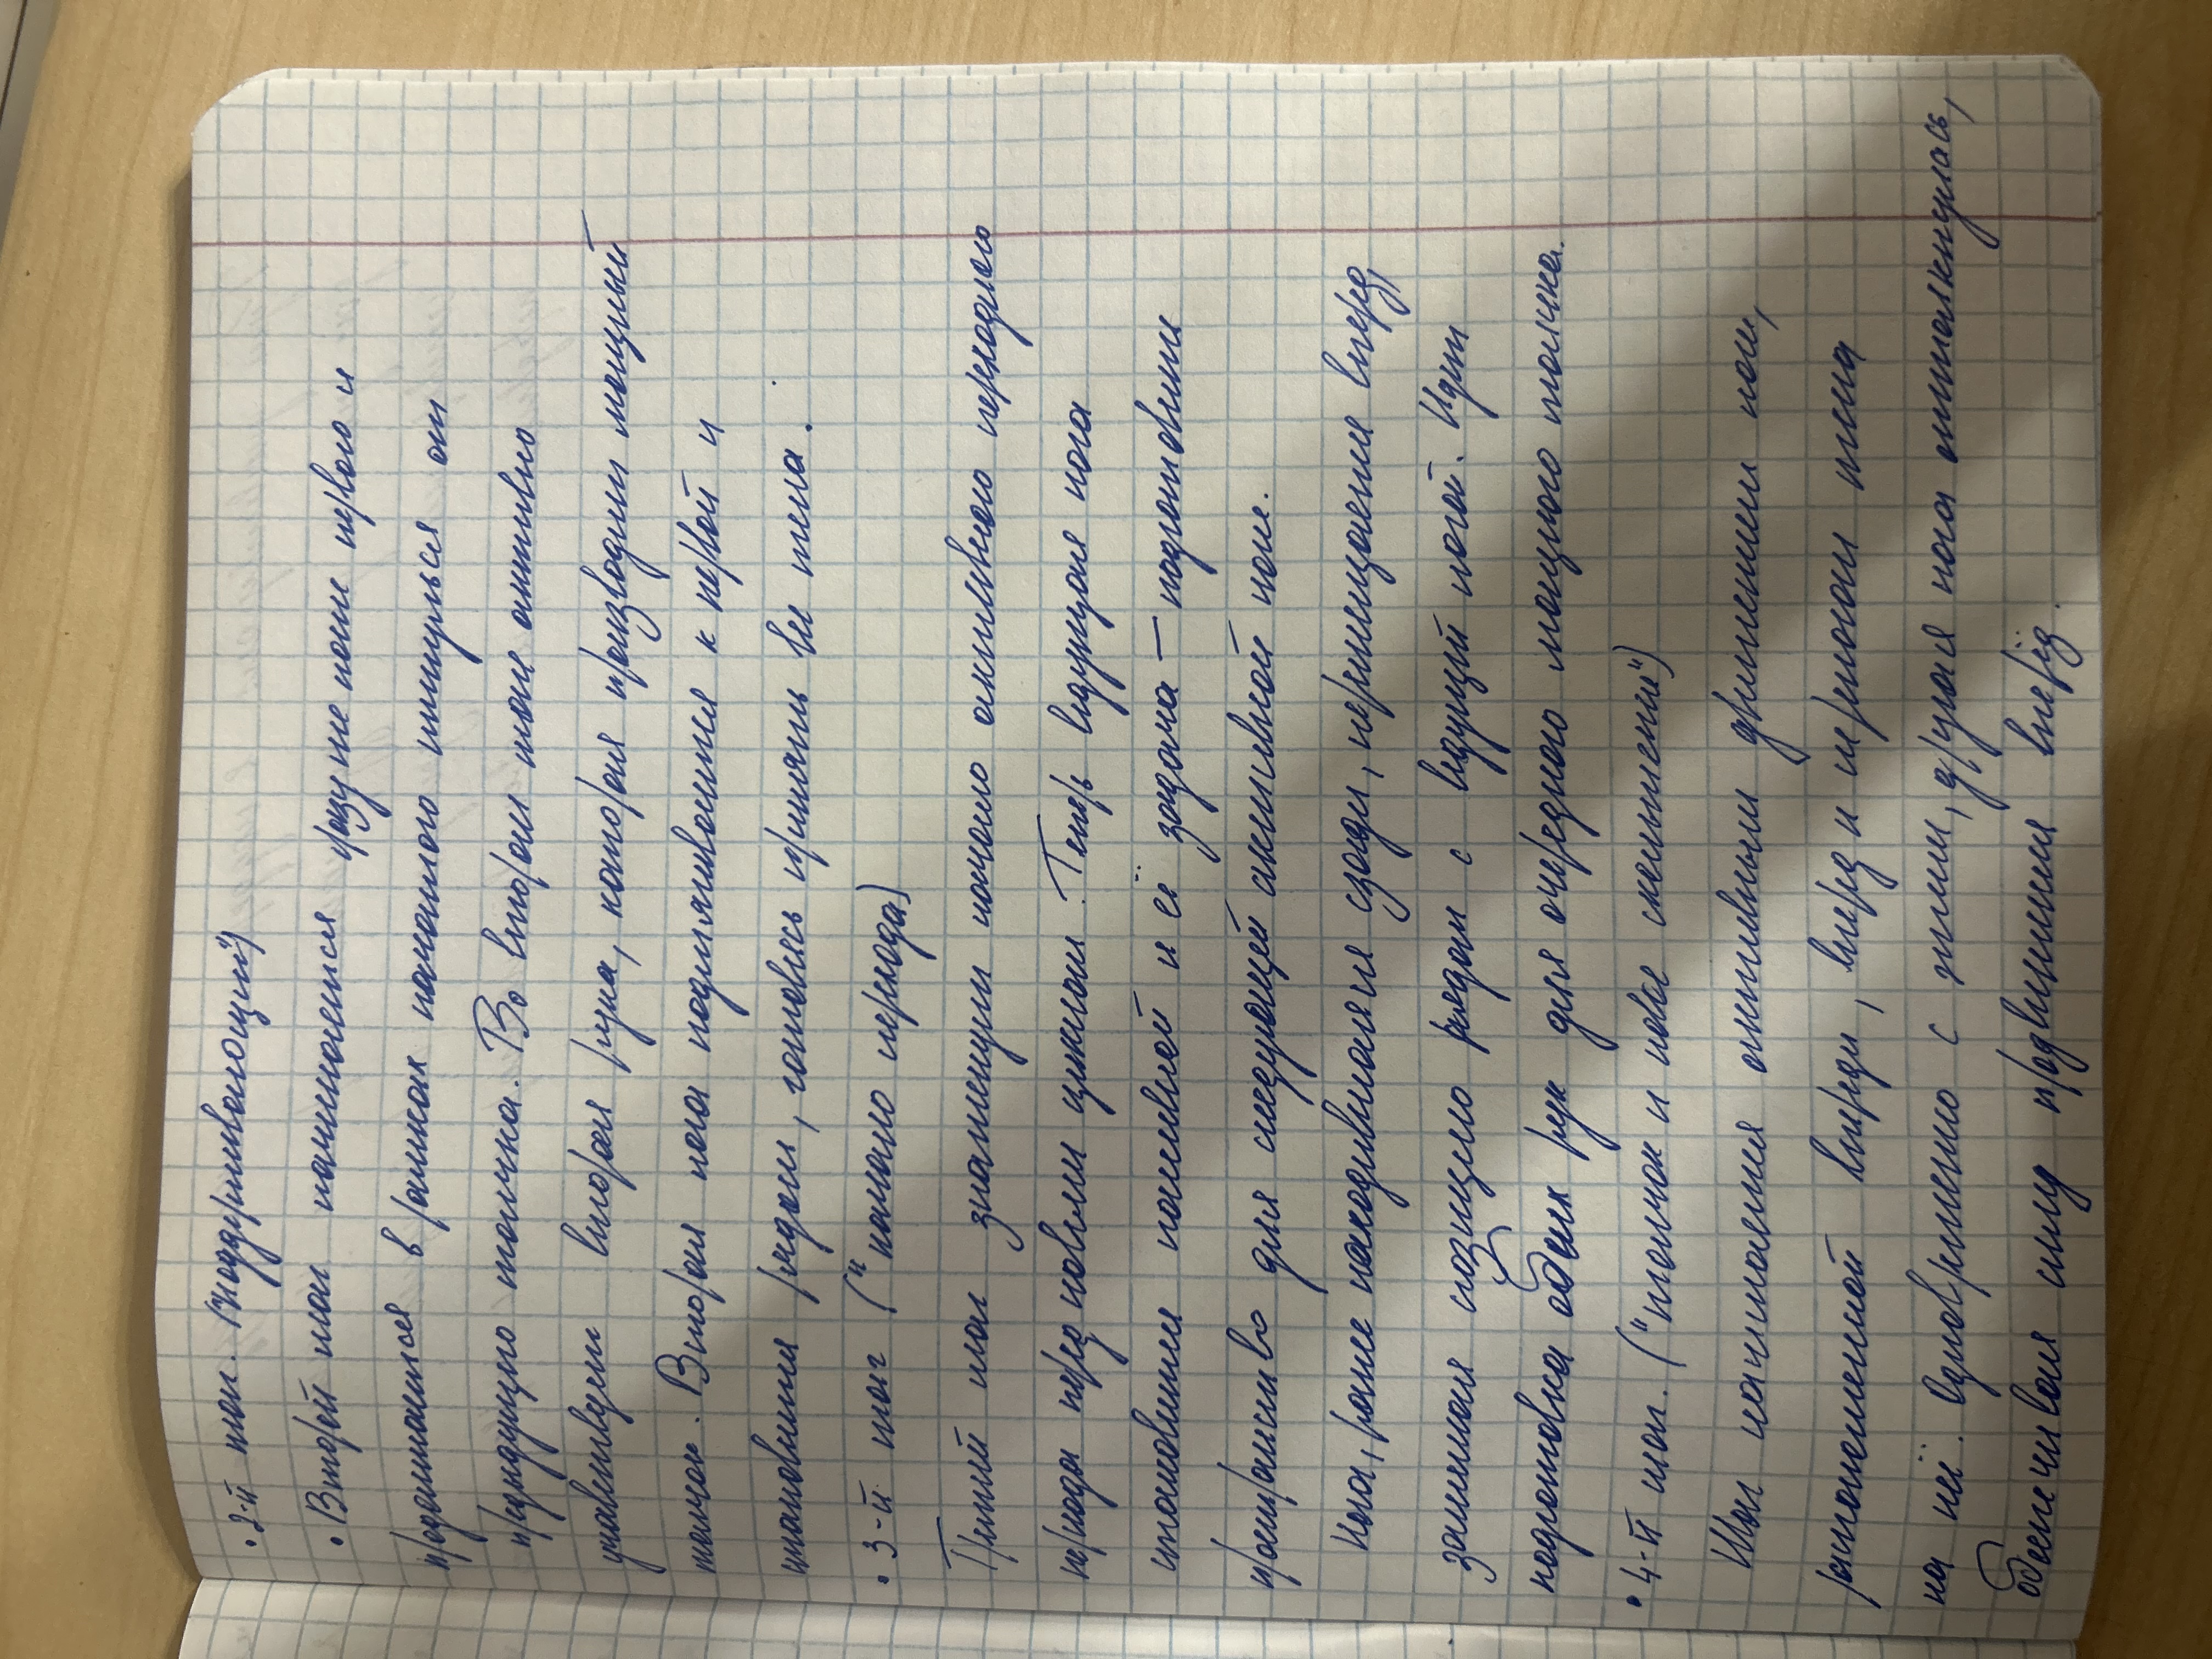 • 2-й шаг. (поддерживающий")
• Второй шаг начинается уже шаги первого и
продолжается в рамках начатого импульса от
предыдущего толчка. Во втором шаге активно
участвует вторая рука, которая производит мощный
толчок. Вторая нога подтягивается к первой и
становится рядом, готовясь принять вес тела.
• 3-й шаг ("начало перехода)
Третий шаг знаменует начало активного переходного
периода перед новым циклом. Теперь ведущая нога
становится пассивной и её задача – подготовить
пространство для следующей активной ноги.
Нога, ранее находившаяся сзади, перемещаете вперед,
занимая позицию рядом с ведущей ногой. Идет
подготовка обеих рук для очередного мощного толчка.
• 4-й шаг. ("толчок и новое скольжение")
Шаг начинается активным движением ноги,
расположенной впереди, вперед и переносом тела
на неё. Одновременно с этим, другая нога отталкнулась,
обеспечивая силу продвижения вперёд.